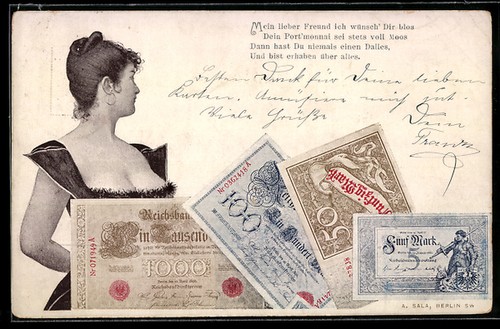 Mein lieber Freund ich wünsch' Dir blos
Dein Port'monnai sei stets voll Moos
Dann hast Du niemals einen Dalles,
Und bist erhaben über alles.
Besten Dank für Deine lieben
Karten. Amüsiere mich gut.
Viele Grüße
Dein
Franz
Reichsban
Ein Tausend
1000
Nr 071949A
Nr 0362418A
100
Ein Hundert
50
Fünfzig Mark
Fünf Mark.
5
A. SALA, BERLIN SW